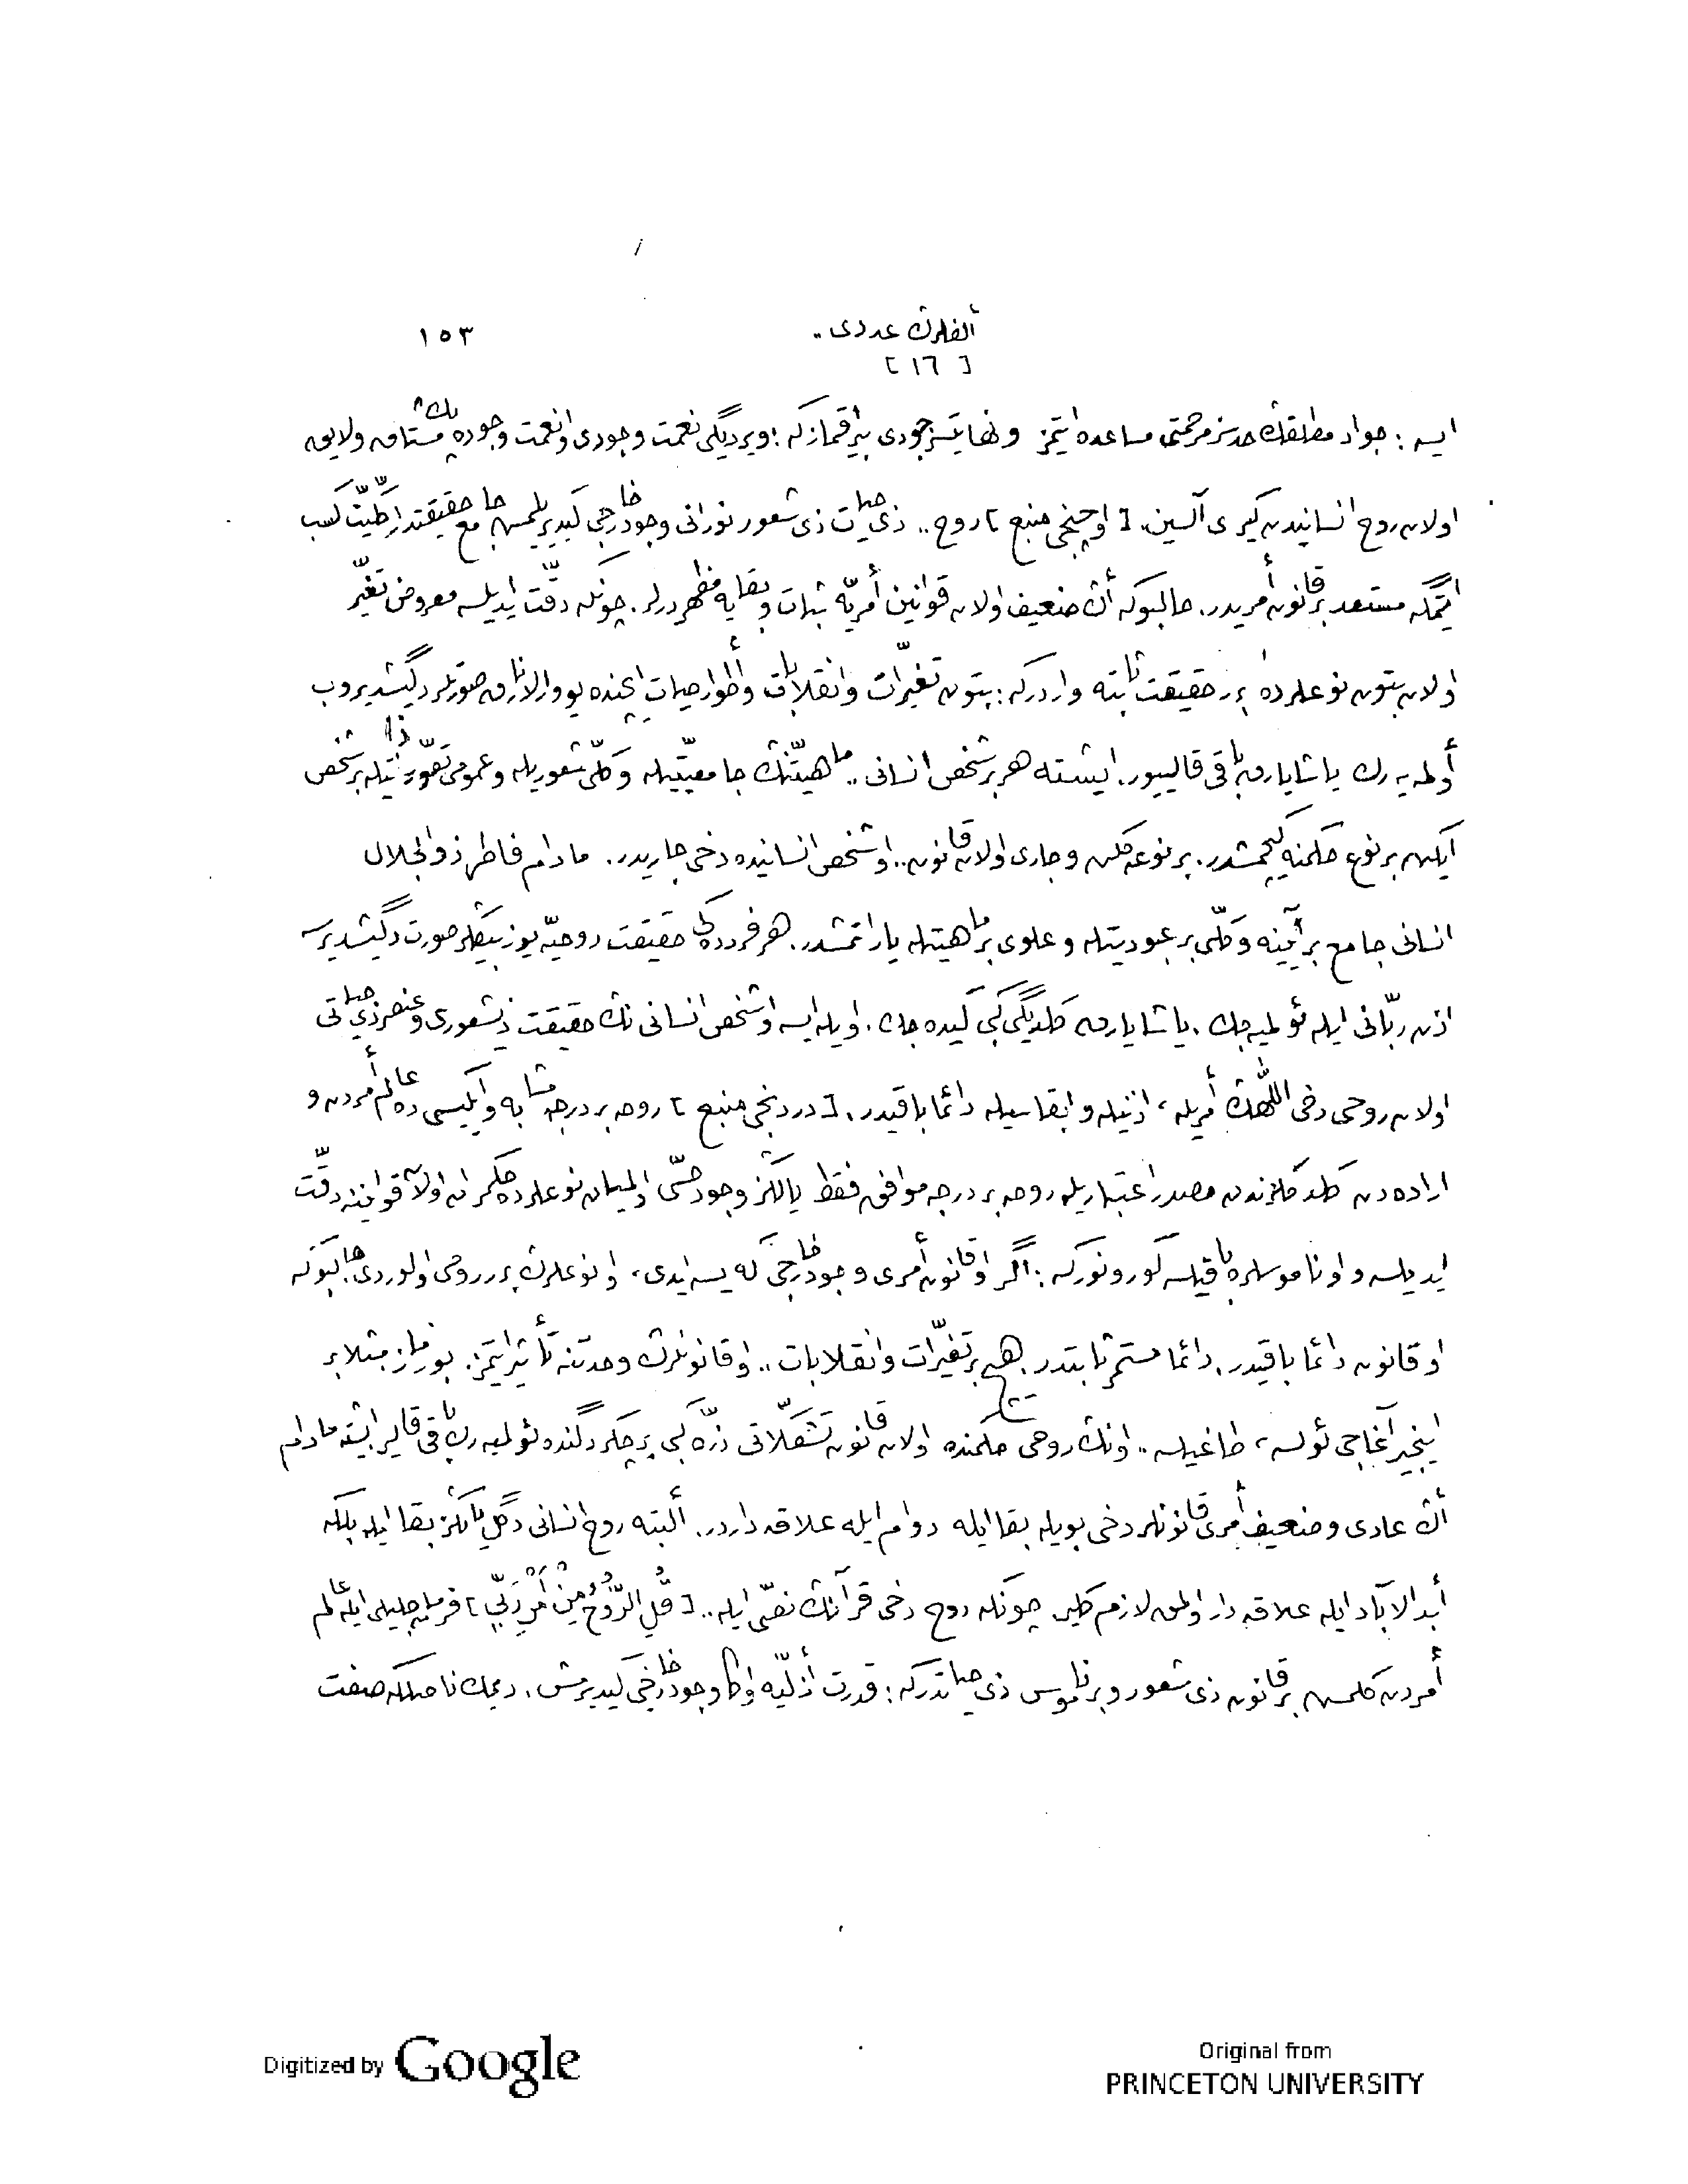 ألفلرڭ عددى.. ١٥٣
[ ١٦ ]
ايسه : جواد مطلقڭ حدسز مرحمتى مساعده ايتمز و نهايتسز جودى بيراقمازكه : ويرديگى نعمت وجودى او نعمت وجوده پك مشتاق و لايق
اولان روح انسانيدن گيرى آلسين. [ اوچنجى منبع ] روح.. ذى حيات ذى شعور نورانى وجود خارجى گيديريلمش جامع حقيقتدار كلّيّت كسب
ايتمگه مستعد بر قانون أمريدر. حالبوكه أڭ ضعيف اولان قوانين أمريّه ثبات و بقايه مظهردرلر. چونكه دقّت ايديلسه معروض تغيّر
اولان بتون نوعلرده بر حقيقت ثابته واردركه : بتون تغيّرات وانقلابات و أطوار حيات ايچنده يووارلانارق صورتلر دگيشديروب
أولمه يه رك ياشايارق باقى قالييور. ايشته هر بر شخص انسانى.. ماهيتنڭ جامعيتيله و كلّى شعوريله و عمومى تصوّراتيله بر شخص
ايكن بر نوع حكمنه گچمشدر. بر نوعه گلن و جارى اولان قانون.. او شخص انسانيده دخى جاريدر. مادام فاطر ذو الجلال
انسانى جامع بر آيينه و كلّى بر عبوديتله و علوى بر ماهيتله ياراتمشدر. هر فردده كى حقيقت روحيّه يوز بيڭلر صورت دگيشديرسه
اذن ربّانى ايله ئولميه جك. ياشايارق گلديگى گبى گيده جك. اويله ايسه او شخص انسانى نڭ حقيقت ذيشعورى و عنصر ذيحياتى
اولان روحى دخى اللهڭ أمريله، اذنيله و ابقاسيله دائما باقيدر. [ دردنجى منبع ] روحه بر درجه مشابه و ايكيسى ده عالم أمردن و
اراده دن گلدكلرندن مصدر اعتباريله روحه بر درجه موافق فقط ياڭلز وجود حسّى اولميان نوعلرده حكمران اولان قوانينه دقّت
ايديلسه و او ناموسلره باقيلسه گورونوركه : اگر او قانون أمرى وجود خارجى گيسه ايدى، او نوعلرڭ بر روحى اولوردى. حالبوكه
او قانون دائما باقيدر. دائما مستمر ثابتدر. هيچ بر تغيّرات و انقلابات.. او قانونلرڭ وحدتنه تأثير ايتمز. بوزماز. مثلا بر
اينجير آغاجى ئولسه، طاغيلسه.. اونڭ روحى حكمنده اولان قانون تشكّلاتى ذرّه گبى بر چكردگنده ئولميه رك باقى قالير. ايشته مادام
أڭ عادى و ضعيف أمرى قانونلر دخى بويله بقا ايله دوام ايله علاقه داردر. ألبته روح انسانى دگل ياڭلز بقا ايله بلكه
أبد الآباد ايله علاقه دار اولمق لازم گلير. چونكه روح دخى قرآنڭ نصّى ايله.. [ قُلِ الرُّوحُ مِنْ أَمْرِ رَبِّى ] فرمان جليلى ايله عالم
أمردن گلمش بر قانون ذى شعور و بر ناموس ذى حياتدركه : قدرت أزليّه اوڭا وجود خارجى گيديرمش. ديمك ناصلكه صفت
Digitized by Google
Original from
PRINCETON UNIVERSITY